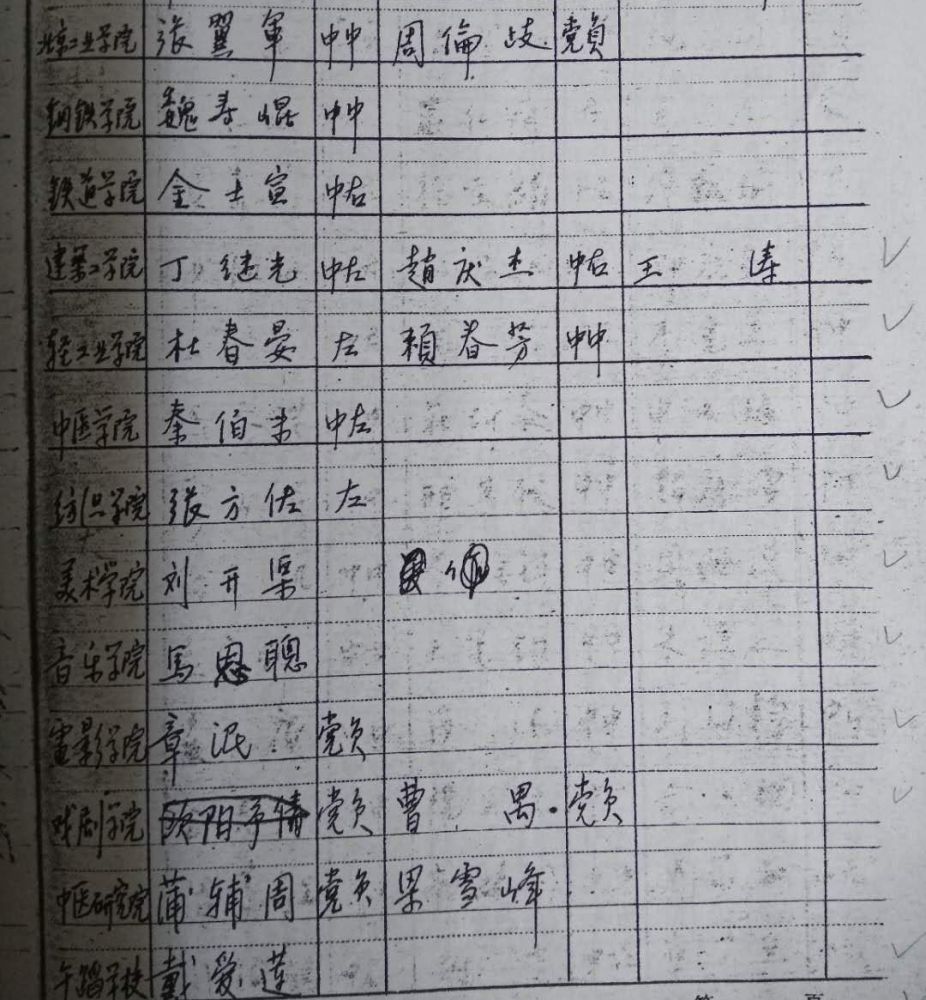 北京工业学院 張翼軍 中中 周倫岐 党員
钢铁学院 魏寿崐 中中
铁道学院 金士宣 中右
建筑工学院 丁继光 中左 趙庆杰 中右 王涛
轻工业学院 杜春晏 左 賴春芳 中中
中医学院 秦伯未 中左
纺织学院 張方佐 左
美术学院 刘开渠
音乐学院 馬思聰
电影学院 章泯 党员
戏剧学院 欧阳予倩 党员 曹禺 党员
中医研究院 蒲辅周 党员 梁雪峰
午蹈学校 戴爱莲
第 頁